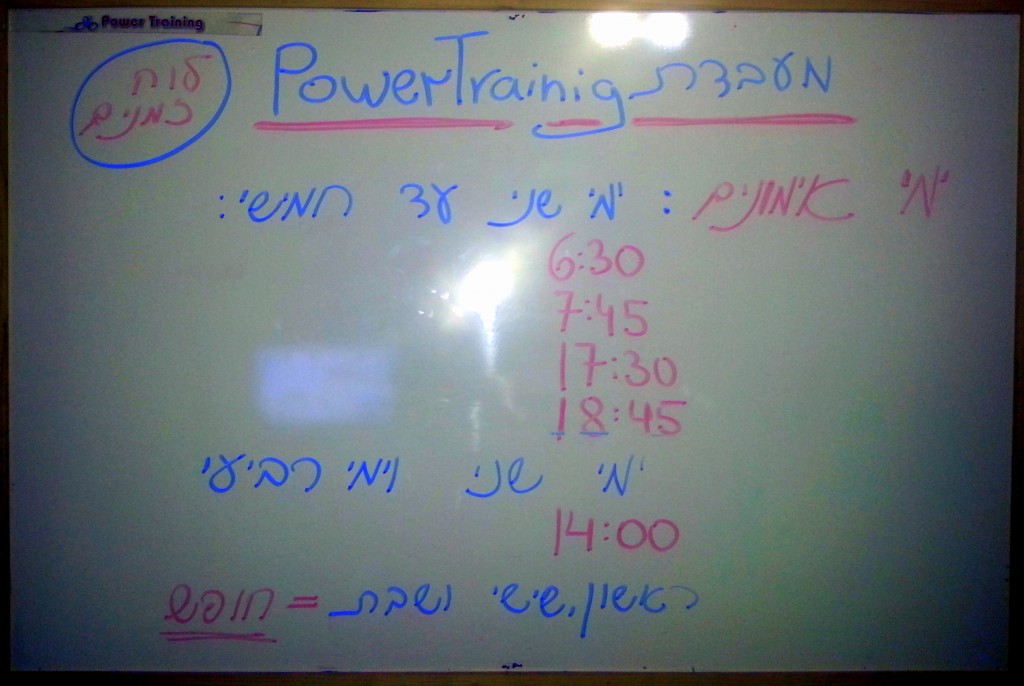 Power Training
לוח
זמנים
מעבדת PowerTrainig
ימי אימונים: ימי שני עד חמישי:
6:30
7:45
17:30
18:45
ימי שני וימי רביעי
14:00
ראשון, שישי ושבת = חופש